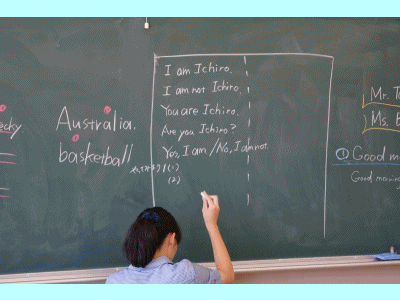 Australia.
basketball
I am Ichiro.
I am not Ichiro.
You are Ichiro.
Are you Ichiro?
Yes, I am. / No, I am not.
(1)
(2)
Mr.
Ms.
① Good
Good